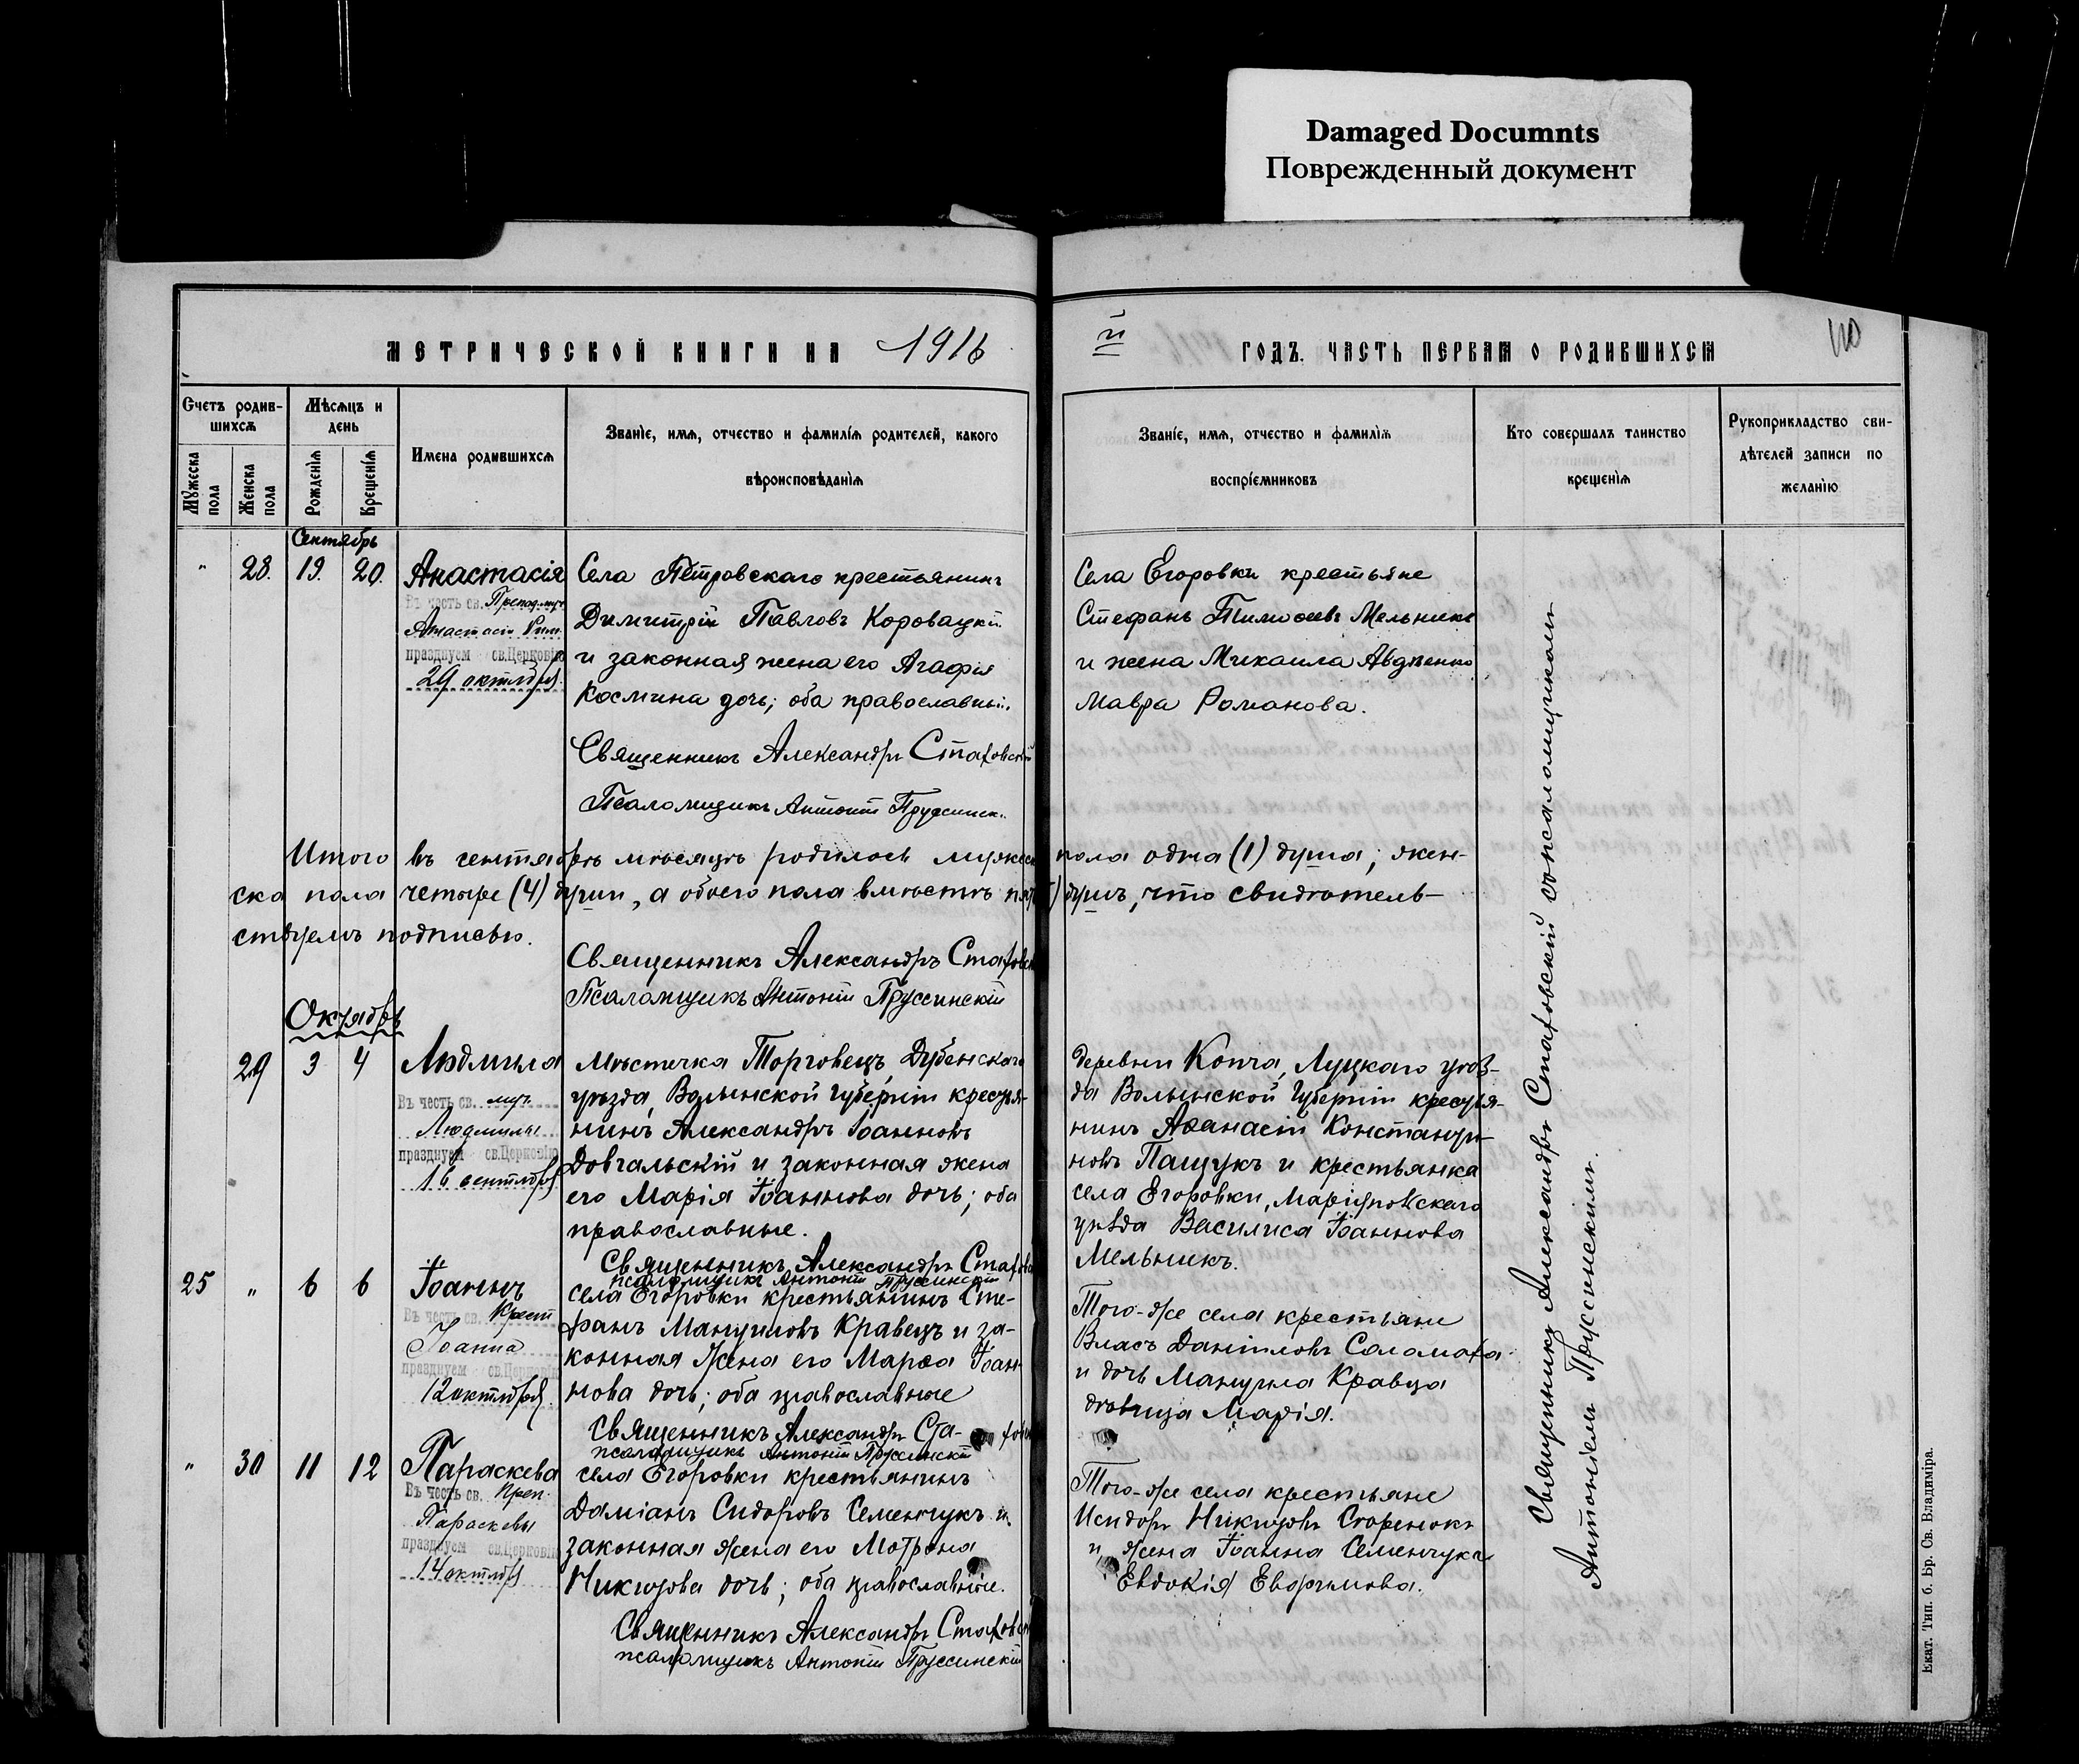 Damaged Documnts
Поврежденный документ
МЕТРИЧЕСКОЙ КНИГИ НА 1916
й ГОДЪ. ЧАСТЬ ПЕРВАЯ О РОДИВШИХСЯ
110
Счетъ родив-
шихся
Мужеска пола
Женска пола
Мѣсяцъ и
день
Рожденія
Крещенія
Имена родившихся
Званіе, имя, отчество и фамилія родителей, какого
вѣроисповѣданія
Званіе, имя, отчество и фамилія
воспріемниковъ
Кто совершалъ таинство
крещенія
Рукоприкладство сви-
дѣтелей записи по
желанію
Сентябрь
" 28. 19. 20. Анастасія
Въ честь св. Препод. муч.
Анастасіи Рим.
празднуем св.Церковію
29 октября.
Села Петровскаго крестьянинъ
Димитрій Павловъ Коровацкій
и законная жена его Агафія
Космина дочь; оба православные.
Священникъ Александръ Стаховскій
Псаломщикъ Антоній Пруссинск.
Села Егоровки крестьяне
Стефанъ Тимоѳеевъ Мельникъ
и жена Михаила Авдѣенко
Мавра Романова.
Итого въ сентябрѣ мѣсяцѣ родилось мужеск пола одна (1) душа; жен-
ска пола четыре (4) души, а обоего пола вмѣстѣ пять ) душъ, что свидѣтель-
ствуемъ подписью.
Священникъ Александръ Стаховск
Псаломщикъ Антоній Пруссинскій
Октябрь
29 3 4 Людмила
Въ честь св. муч.
Людмилы
празднуем св.Церковію
16 сентября
Мѣстечка Торговецъ, Дубенскаго
уѣзда, Волынской губерніи крестья-
нинъ Александръ Іоанновъ
Довгальскій и законная жена
его Марія Іоаннова дочь; оба
православные.
Священникъ Александръ Стахов
псаломщикъ Антоній Пруссинскій
деревни Копча, Луцкаго уѣз-
да Волынской Губерніи крестья-
нинъ Аѳанасій Константи-
новъ Пащукъ и крестьянка
села Егоровки, Маріупольскаго
уѣзда Василиса Іоаннова
Мельникъ.
25 " 6 6 Іоаннъ
Въ честь св. Крест
Іоанна
празднуем св.Церковію
12 октября.
села Егоровки крестьянинъ Сте-
фанъ Мануиловъ Кравецъ и за-
конная жена его Марѳа Іоан-
нова дочь; оба православные
Священникъ Александръ Ста- хов
псаломщикъ Антоній Пруссинскій
Того-же села крестьяне
Власъ Даніиловъ Саломаха
и дочь Мануила Кравца
дѣвица Марія.
" 30 11 12 Параскева
Въ честь св. Преп.
Параскевы
празднуем св.Церковію
14 октября
села Егоровки крестьянинъ
Даміанъ Сидоровъ Семенчукъ и
законная жена его Мотрона
Никитова дочь; оба православные.
Священникъ Александръ Стаховск
псаломщикъ Антоній Пруссинскій
Того-же села крестьяне
Исидоръ Никитовъ
и жена Іоанна Семенчука
Евдокія Евфимова.
Священникъ Александръ Стаховскій съ псаломщикомъ
Антоніемъ Пруссинскимъ.
Екат. Тип. б. Бр. Св. Владиміра.